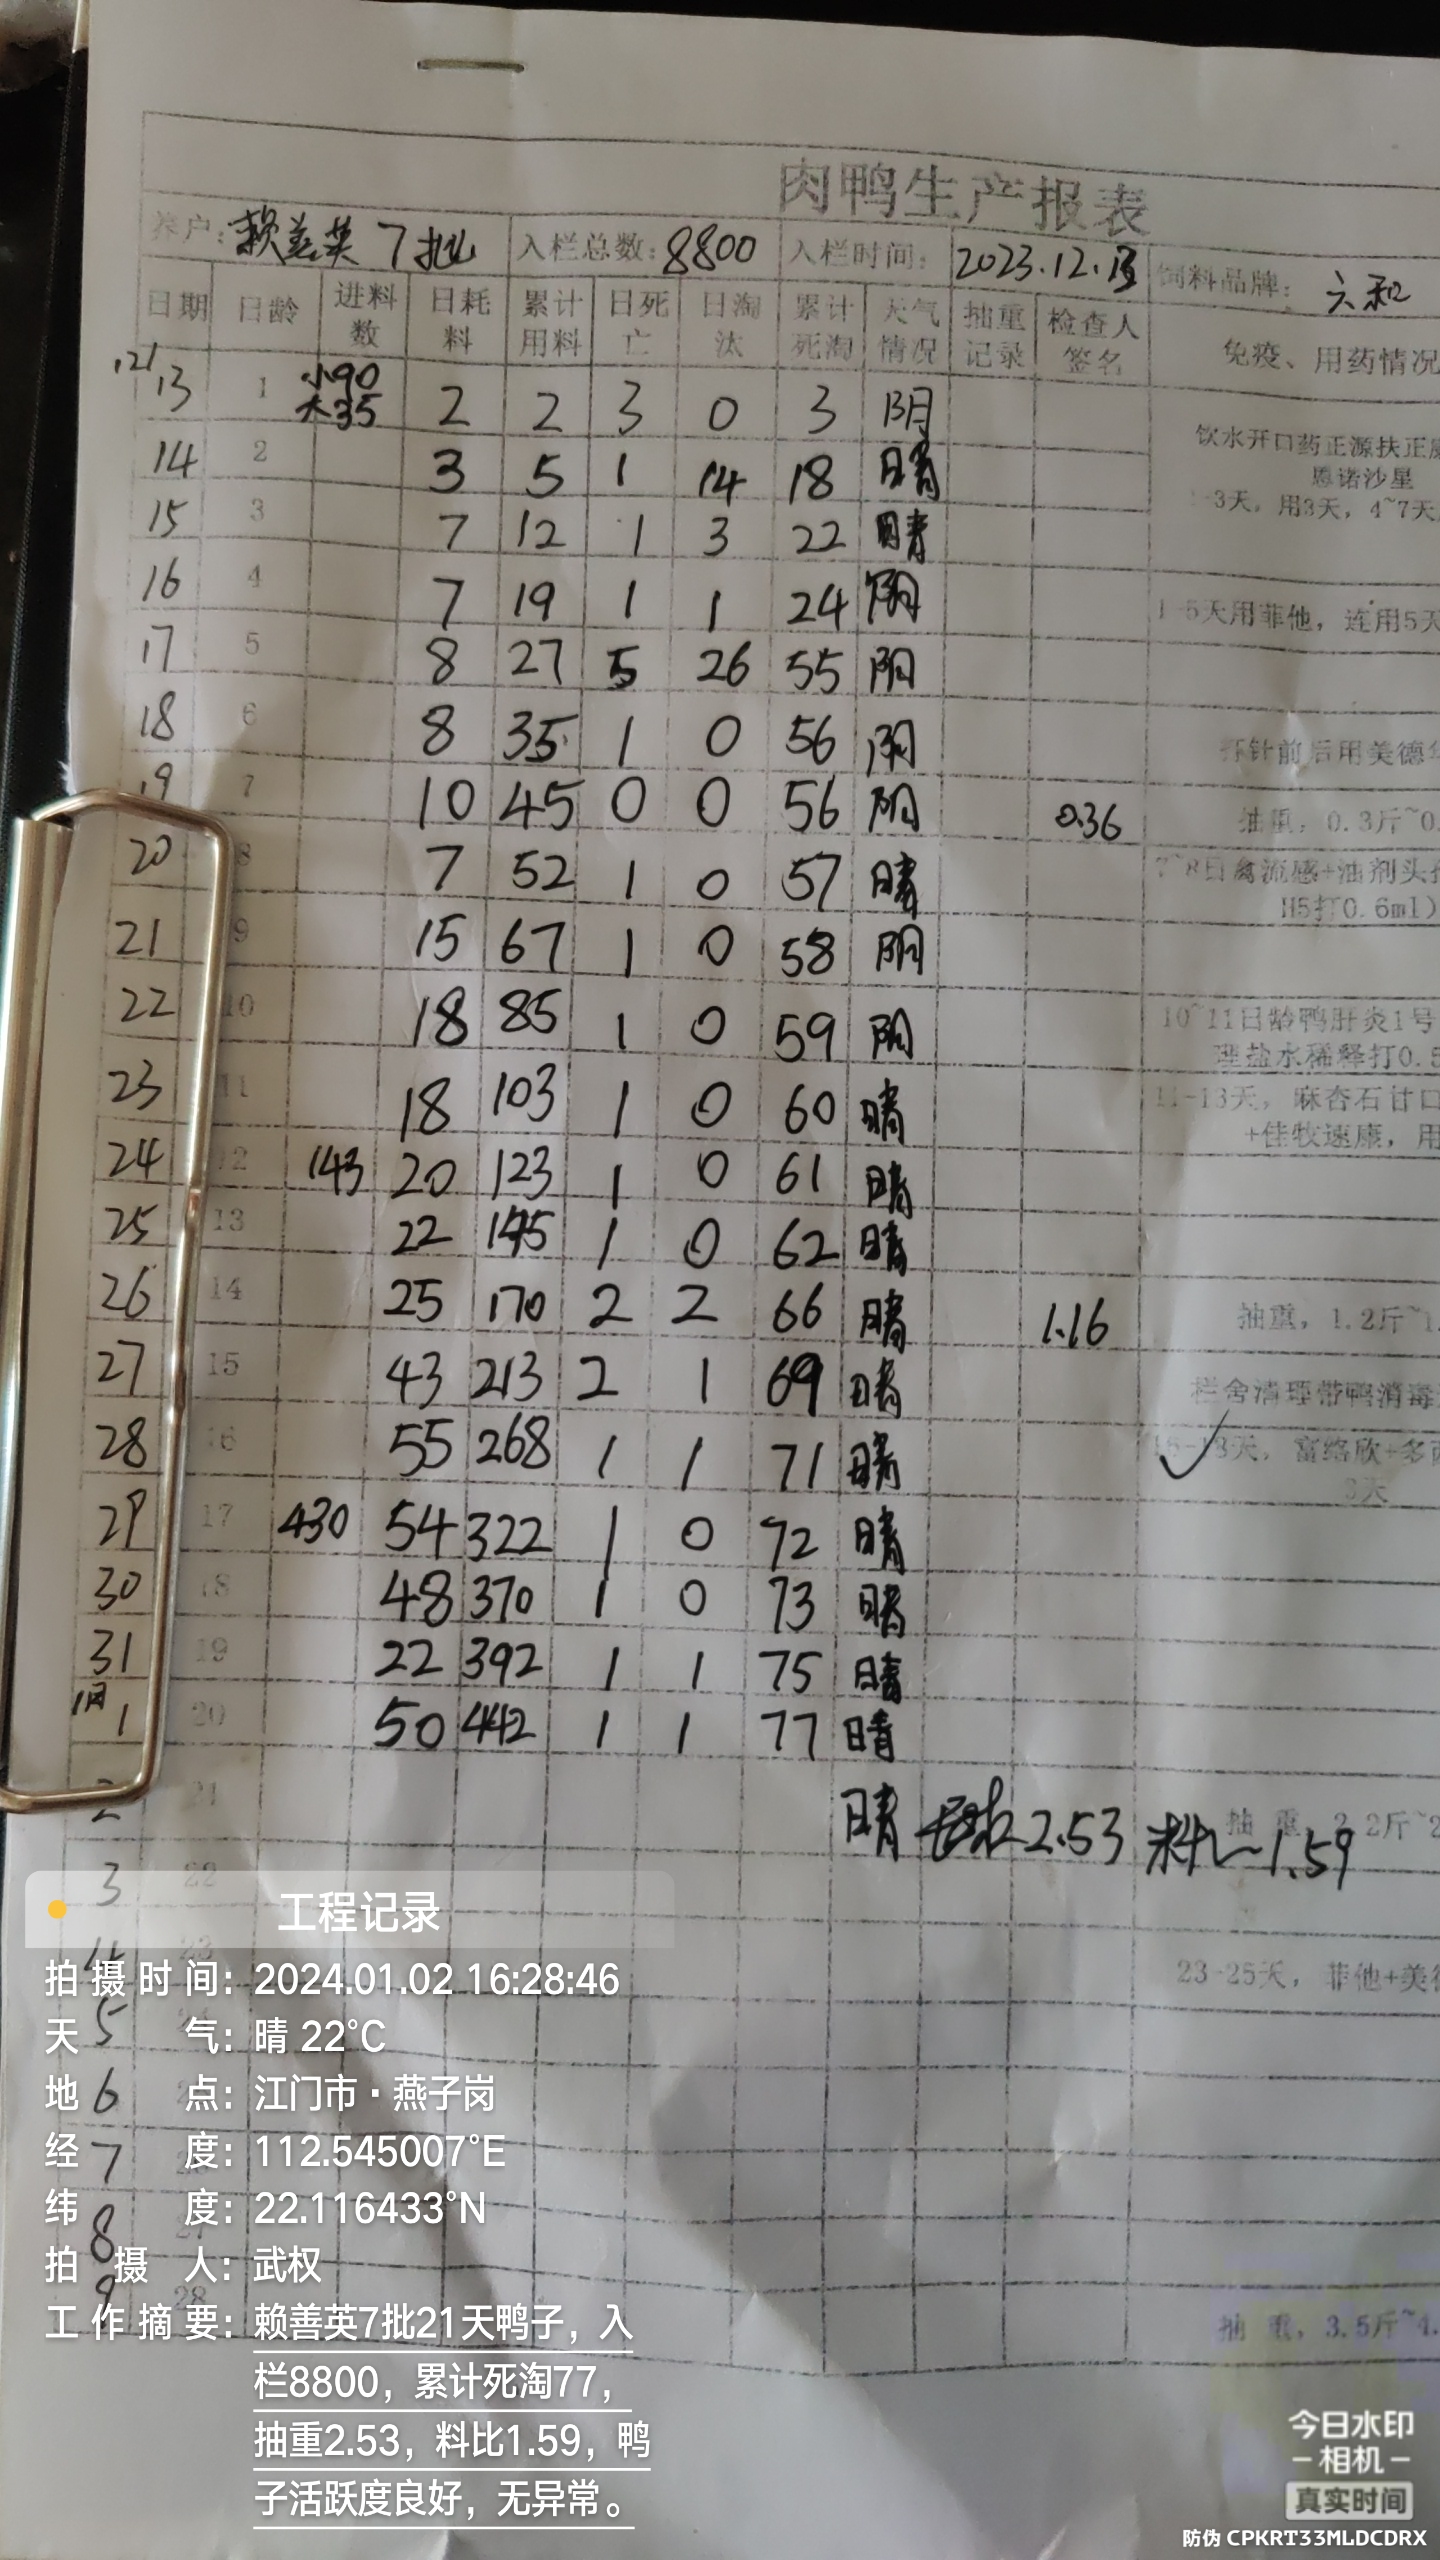 肉鸭生产报表
养户: 赖善英 7批 入栏总数: 8800 入栏时间: 2023.12.13 饲料品牌: 六和
日期 日龄 进料数 日耗料 累计用料 日死亡 日淘汰 累计死淘 天气情况 抽重记录 检查人签名 免疫、用药情况
12/13 1 小90 大35 2 2 3 0 3 阴
饮水开口药正源扶正
14 2 3 5 1 14 18 晴
恩诺沙星
3天，用3天，4~7天
15 3 7 12 1 3 22 晴
16 4 7 19 1 1 24 阴 1-5天用菲他，连用5天
17 5 8 27 5 26 55 阴
18 6 8 35 1 0 56 阴 打针前后用美德
19 7 10 45 0 0 56 阴 0.36 抽重，0.3斤~0.
20 8 7 52 1 0 57 晴 7~8日禽流感+油剂头
H5打0.6ml)
21 9 15 67 1 0 58 阴
22 10 18 85 1 0 59 阴 10~11日龄鸭肝炎1号
理盐水稀释打0.5
23 11 18 103 1 0 60 晴 11-13天，麻杏石甘口
+佳牧速康，用
24 12 143 20 123 1 0 61 晴
25 13 22 145 1 0 62 晴
26 14 25 170 2 2 66 晴 1.16 抽重，1.2斤~1.
27 15 43 213 2 1 69 晴 栏舍清理带鸭消毒
28 16 55 268 1 1 71 晴 16-18天，富络欣+多
3天
29 17 430 54 322 1 0 72 晴
30 18 48 370 1 0 73 晴
31 19 22 392 1 1 75 晴
1月1 20 50 442 1 1 77 晴
2 21 晴 2.53 料比1.59 抽重，2.2斤~2
3 22
4 23 23-25天，菲他+美德
5
6
7
8
9 28 抽重，3.5斤~4.
工程记录
拍摄时间: 2024.01.02 16:28:46
天气: 晴 22°C
地点: 江门市·燕子岗
经度: 112.545007°E
纬度: 22.116433°N
拍摄人: 武权
工作摘要: 赖善英7批21天鸭子，入
栏8800，累计死淘77，
抽重2.53，料比1.59，鸭
子活跃度良好，无异常。
今日水印
-相机-
真实时间
防伪 CPKRT33MLDCDRX